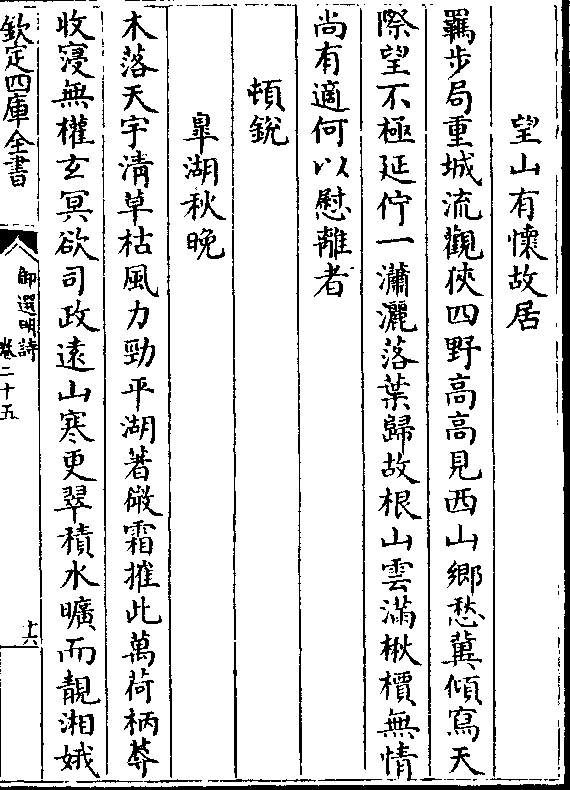 望山有懷故居
羈步局重城流觀狹四野高高見西山鄉愁冀傾寫天
際望不極延佇一瀟灑落葉歸故根山雲滿楸檟無情
尚有適何以慰離者
頓銳
皐湖秋晚
木落天宇清草枯風力勁平湖著嚴霜摧此萬荷柄蓐
收寖無權玄冥欲司政遠山寒更翠積水曠而靚湘娥
欽定四庫全書
御選明詩
卷二十五
十六